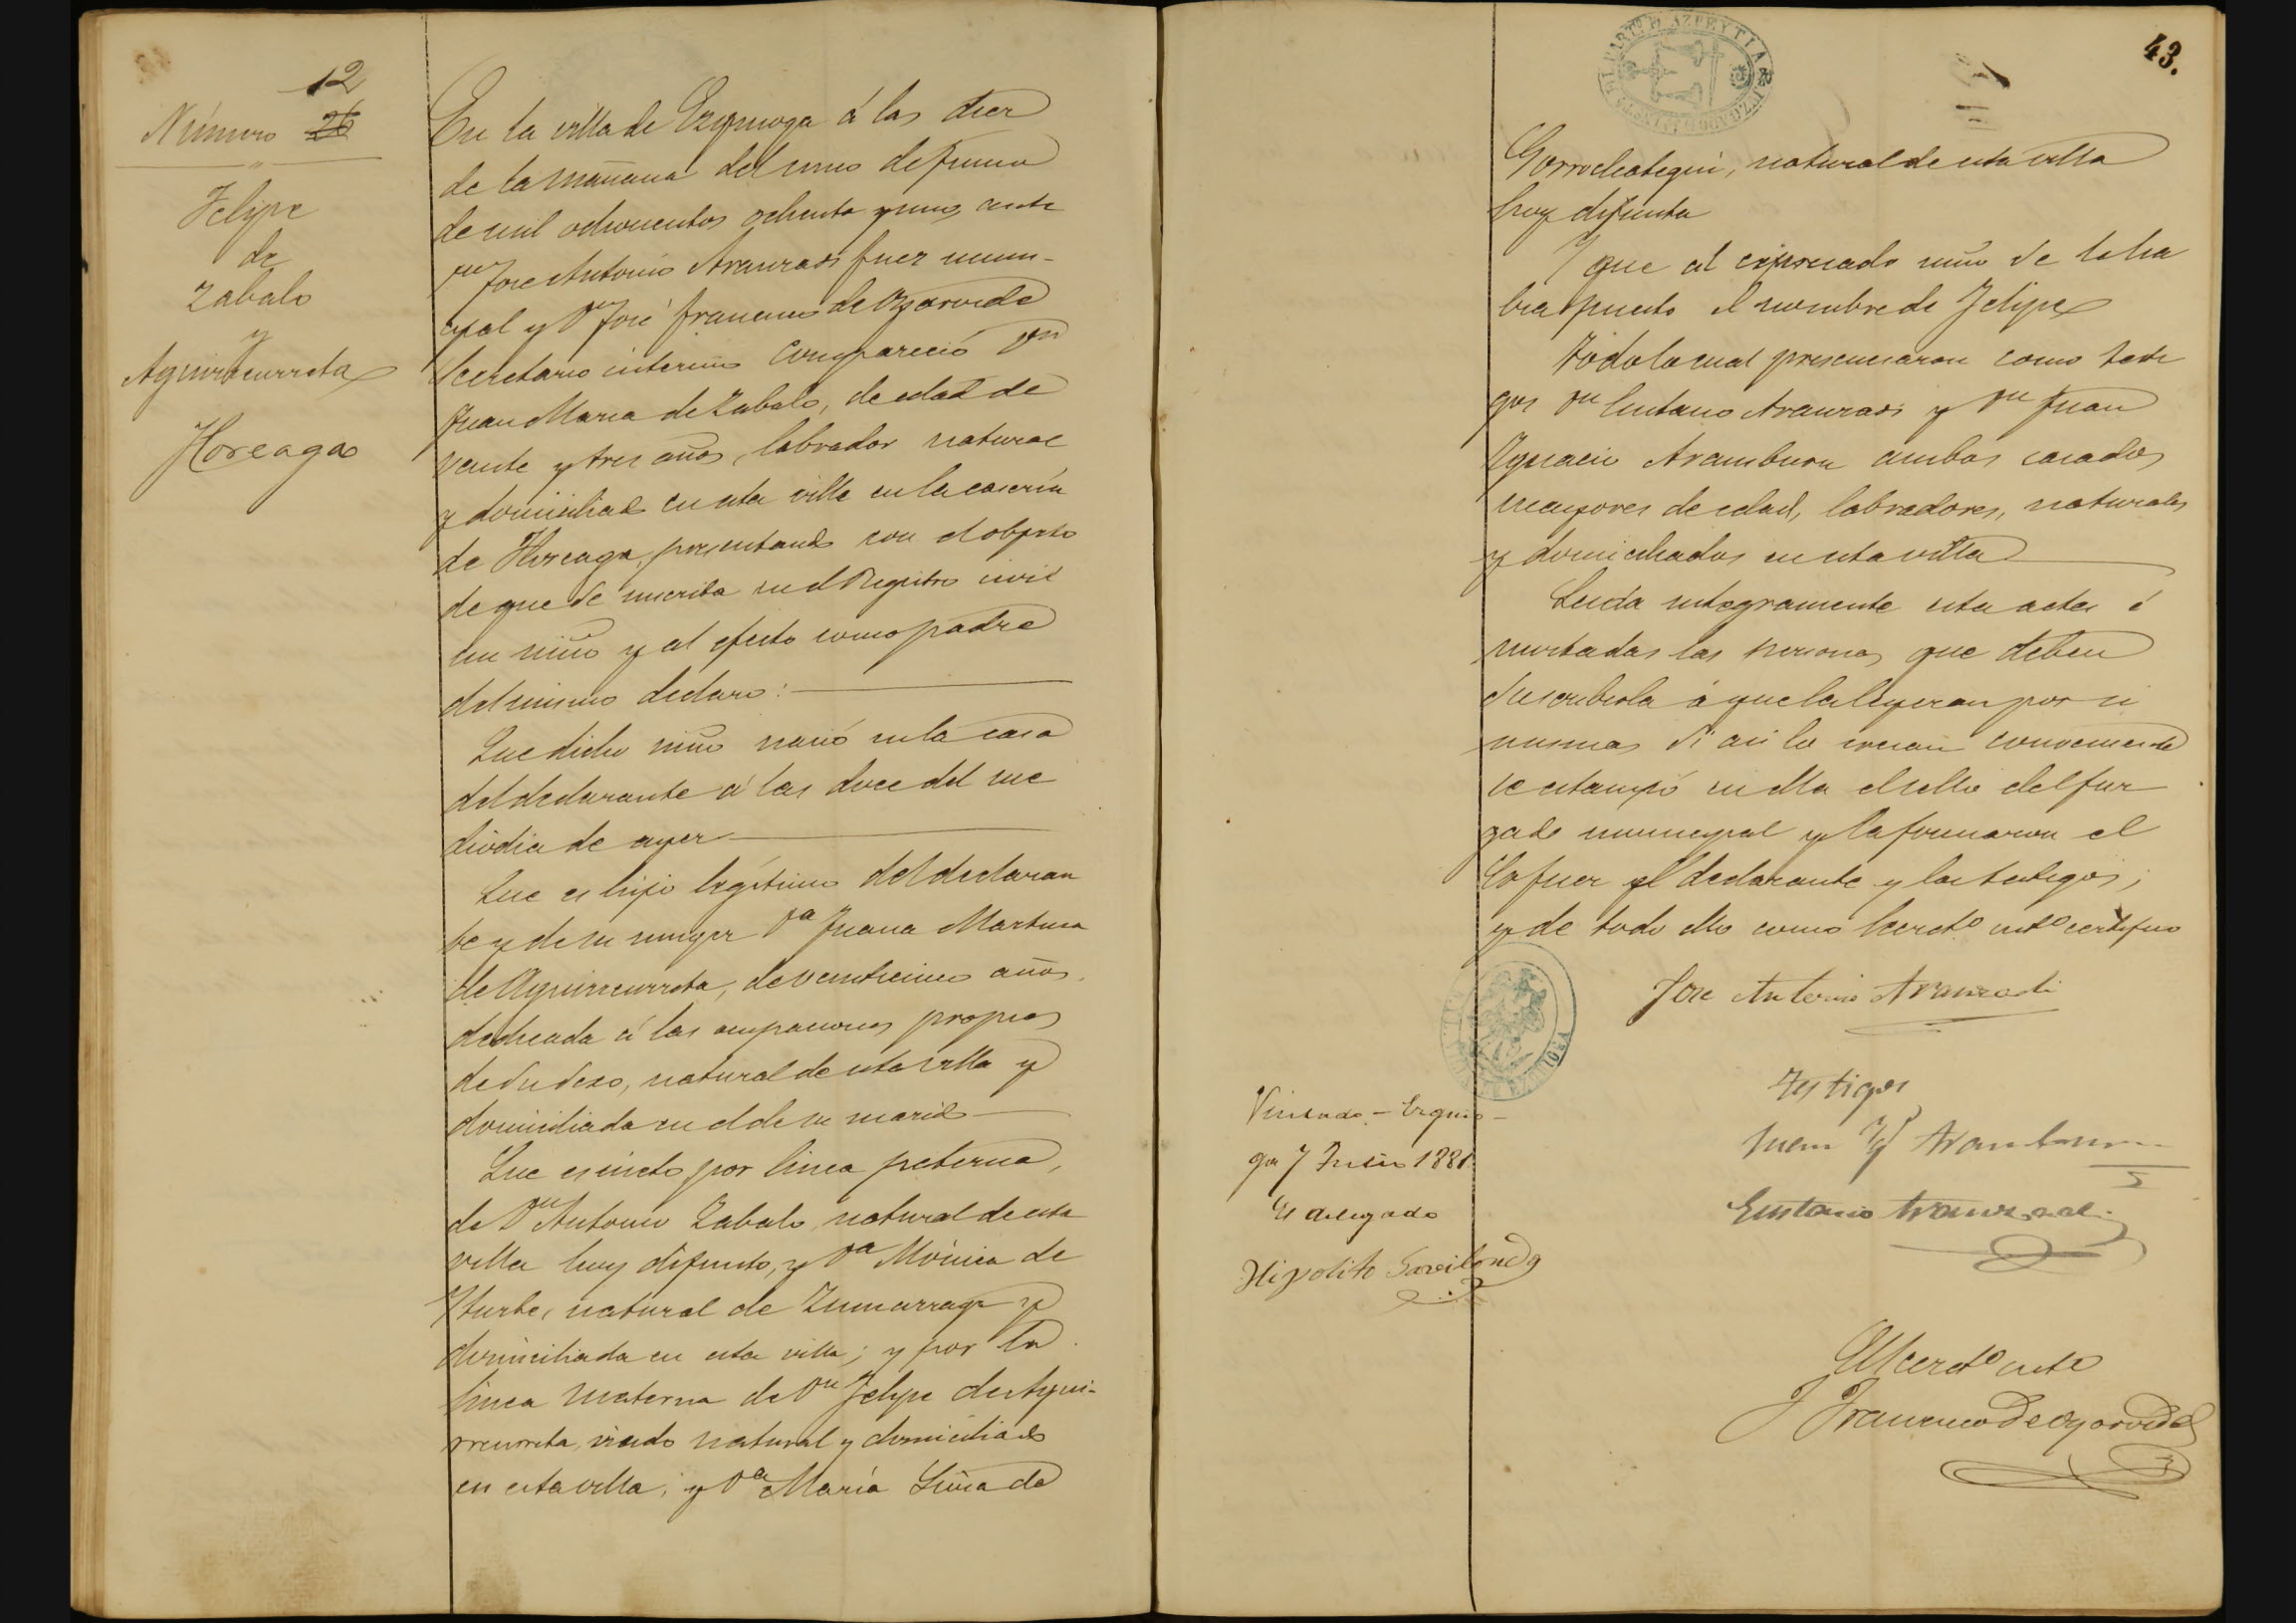 12
Número 26
Felipe
de
Zabalo
y
Aguirrecurreta
Horeaga
En la villa de Ezquioga á las diez
de la mañana del uno de Junio
de mil ochocientos ochenta y uno, ante
Dn José Antonio Aranzadi Juez muni-
cipal y Dn José Francisco de
Secretario interino compareció Dn
Juan Maria de Zabalo, de edad de
veinte y tres años, labrador natural
y domiciliado en esta villa en la caseria
de Horeaga, presentando con el objeto
de que se inscriba en el Registro civil
un niño y al efecto como padre
del mismo declaro:
Que dicho niño nació en la casa
del declarante á las doce del me
diodia de ayer
Que es hijo legítimo del declaran
te y de su muger Da Juana Martina
de Aguirrecurreta, de veinticinco años,
dedicada á las ocupaciones propias
de su sexo, natural de esta villa y
domiciliada en el de su marido
Que es nieto por linea paterna,
de Dn Antonio Zabalo, natural de esta
villa hoy difunto, y Da Mónica de
Yturbe, natural de Zumarraga y
domiciliada en esta villa; y por la
linea materna de Dn Felipe de Agui-
rrecurreta, viudo natural y domiciliado
en esta villa, y Da María de
43.
Gorrochategui, natural de esta villa
hoy difunta
Y que al expresado niño se le ha
bia puesto el nombre de Felipe
Todo lo cual presenciaron como testi
gos Dn Eustasio Aranzadi y Dn Juan
Ygnacio Aramburu ambos casados
mayores de edad, labradores, naturales
y domiciliados en esta villa
Leida integramente esta acta é
invitadas las personas que deben
suscribirla á que la leyeran por si
mismas si asi lo creian conveniente
se estampó en ella el sello del Juz
gado municipal y la firmaron el
Sr Juez el declarante y los testigos;
y de todo ello como Secreto. into. certifico
Jose Antonio Aranzadi
Testigos
Juan Yg Aramburu
Eustasio Aranzadi
Visitado - Ezquio-
ga 7 Julio 1881
El delegado
Hipolito
El Secreto into
J Francisco de